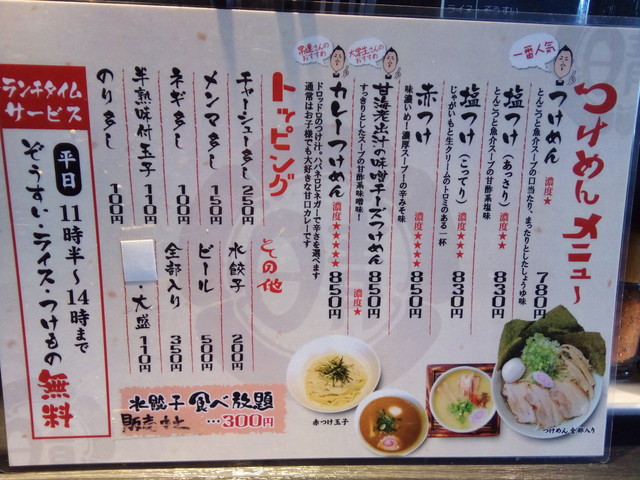 つけめんメニュー
一番人気
つけめん 濃度★ 780円
とんこつと魚介スープの口当たり、まったりとしたしょうゆ味
塩つけ(あっさり) 濃度★ 830円
とんこつと魚介スープの甘酢系塩味
塩つけ(こってり) 濃度★★★ 830円
じゃがいもと生クリームのトロミのある一杯
赤つけ 濃度★★★★ 850円
味濃いめー濃厚スープの辛みそ味
大学生さんのおすすめ
甘海老出汁の味噌チーズつけめん 濃度★ 850円
すっきりとしたスープの甘酢系味噌味!
おすすめ
カレーつけめん 濃度★★★★★ 850円
ドロッドロのつけ汁。ハバネロビネガーで辛さを選べます
通常はお子様でも大好きな甘口カレーです
トッピング
チャーシュー多し 250円
メンマ多し 150円
ネギ多し 100円
半熟味付玉子 110円
のり多し 100円
その他
水餃子 200円
ビール 500円
全部入り 350円
・大盛 110円
水餃子 食べ放題
…300円
ランチタイム
サービス
平日 11時半〜14時まで
ぞうすい・ライス・つけもの 無料
赤つけ玉子
つけめん 全部入り